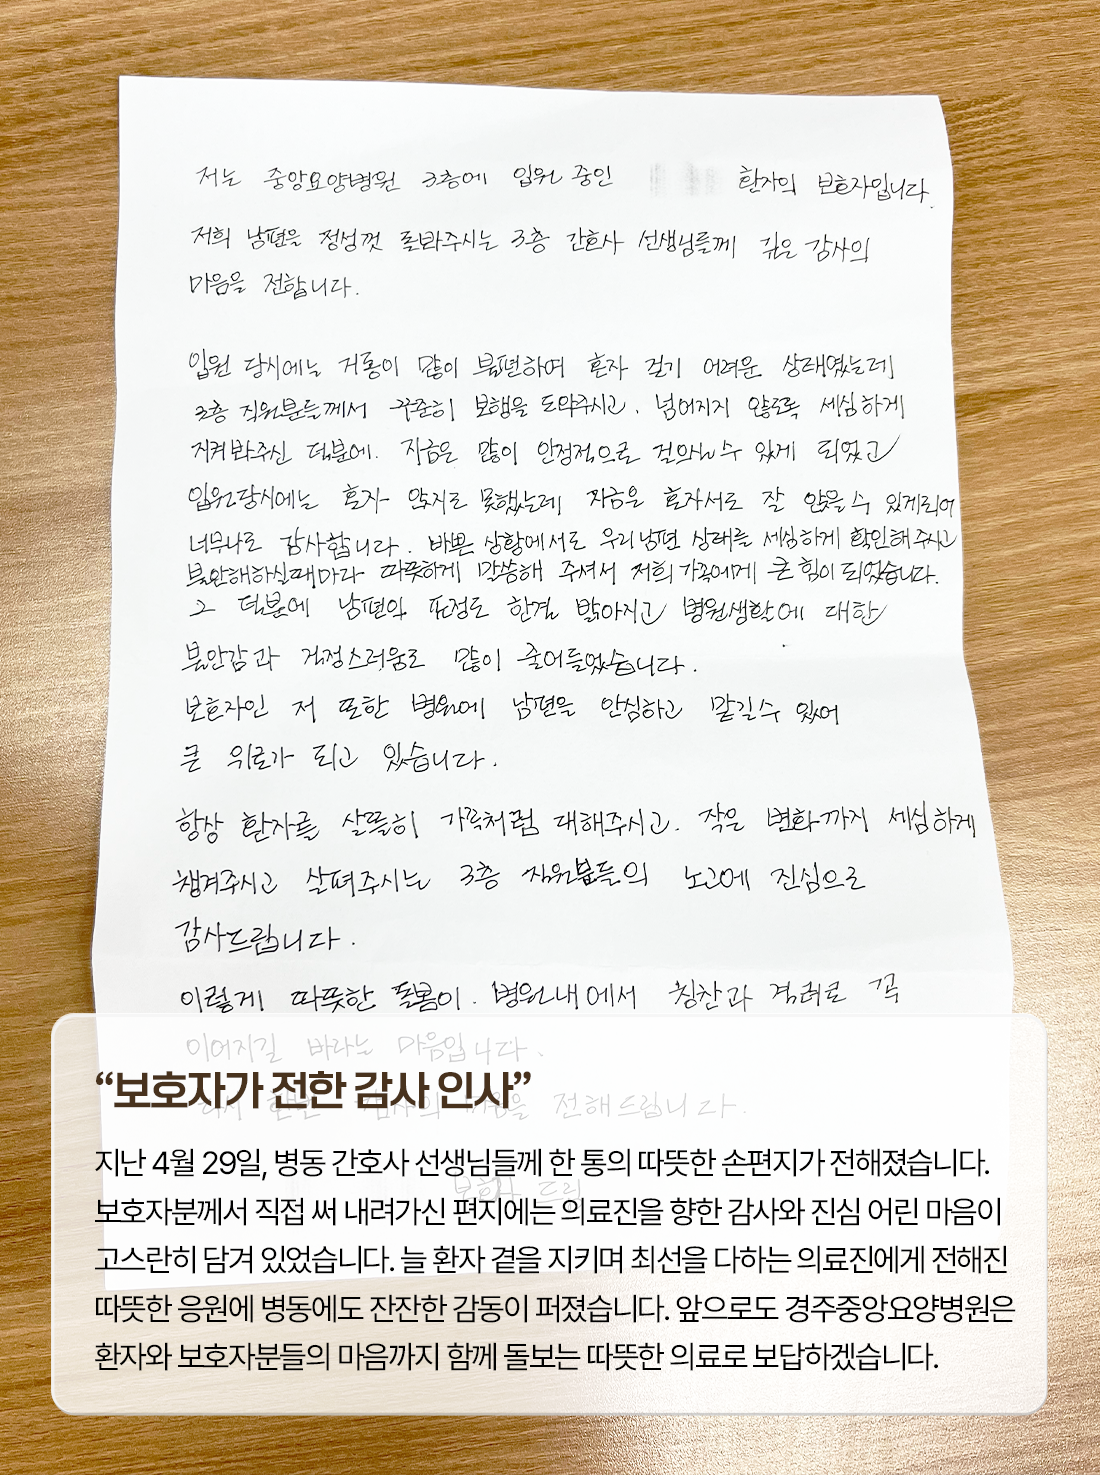 저는 중앙요양병원 3층에 입원 중인 환자의 보호자입니다.
저희 남편을 정성껏 돌봐주시는 3층 간호사 선생님들께 깊은 감사의
마음을 전합니다.
입원 당시에는 거동이 많이 불편하여 혼자 걷기 어려운 상태였는데
3층 직원분들께서 꾸준히 보행을 도와주시고, 넘어지지 않도록 세심하게
지켜봐주신 덕분에. 지금은 많이 안정적으로 걸으실수 있게 되었고
입원당시에는 혼자 앉지도 못했는데 지금은 혼자서도 잘 앉을수 있게되어
너무나도 감사합니다. 바쁜 상황에서도 우리남편 상태를 세심하게 확인해주시고
불안해하실때마다 따뜻하게 말씀해 주셔서 저희가족에게 큰 힘이 되었습니다.
그 덕분에 남편의 표정도 한결 밝아지고 병원생활에 대한
불안감과 걱정스러움도 많이 줄어들었습니다.
보호자인 저 또한 병원에 남편을 안심하고 맡길수 있어
큰 위로가 되고 있습니다.
항상 환자를 살뜰히 가족처럼 대해주시고. 작은 변화까지 세심하게
챙겨주시고 살펴주시는 3층 직원분들의 노고에 진심으로
감사드립니다.
이렇게 따뜻한 돌봄이. 병원내에서 칭찬과 격려로 꼭
이어지길 바라는 마음입니다.
다시 한번 감사의 마음을 전해드립니다.
보호자 드림
“보호자가 전한 감사 인사”
지난 4월 29일, 병동 간호사 선생님들께 한 통의 따뜻한 손편지가 전해졌습니다.
보호자분께서 직접 써 내려가신 편지에는 의료진을 향한 감사와 진심 어린 마음이
고스란히 담겨 있었습니다. 늘 환자 곁을 지키며 최선을 다하는 의료진에게 전해진
따뜻한 응원에 병동에도 잔잔한 감동이 퍼졌습니다. 앞으로도 경주중앙요양병원은
환자와 보호자분들의 마음까지 함께 돌보는 따뜻한 의료로 보답하겠습니다.